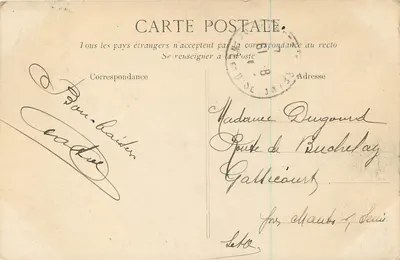 CARTE POSTALE
Tous les pays étrangers n'acceptent pas la correspondance au recto
Se renseigner à la Poste
Correspondance
Adresse
Bon baiser
Madame Dugourd
Route de Buchelay
Gassicourt
près Mantes s/ Seine